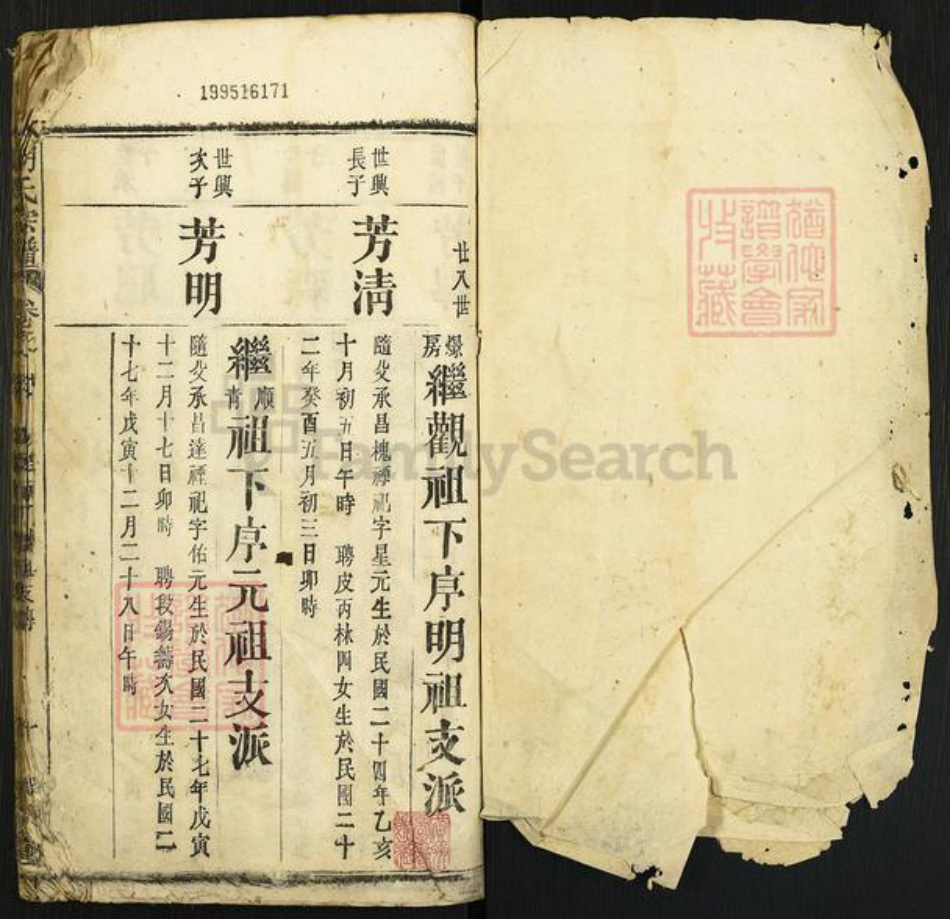 199516171
廿八世
世興
長子
芳清
世興
次子
芳明
房 繼觀祖下序明祖支派
隨父承昌槐禪祀字星元生於民國二十四年乙亥
十月初五日午時 聘皮丙林四女生於民國二十
二年癸酉五月初三日卯時
繼順青祖下序元祖支派
隨父承昌達禋祀字佑元生於民國二十七年戊寅
十二月十七日卯時 聘段錫籌次女生於民國二
十七年戊寅十二月二十八日午時
胡氏宗譜
猶他家譜學會收藏
FamilySearch